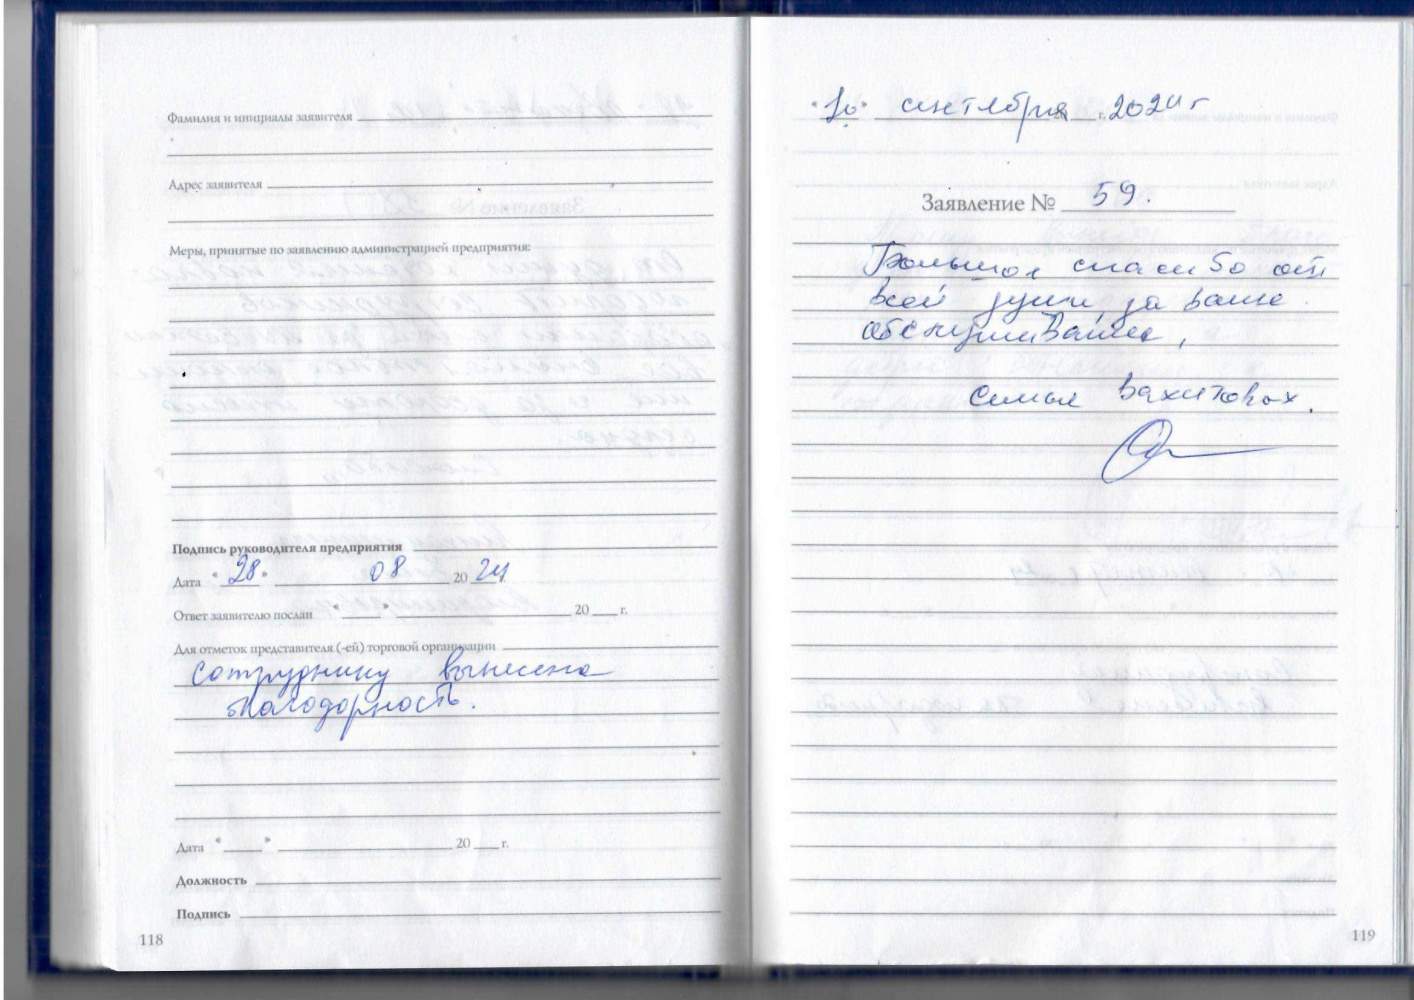 Фамилия и инициалы заявителя
Адрес заявителя
Меры, принятые по заявлению администрацией предприятия:
Подпись руководителя предприятия
Дата "28" 08 2024 г.
Ответ заявителю послан " " 20 г.
Для отметок представителя (-ей) торговой организации
Сотруднику вынесена
благодарность.
Дата " " 20 г.
Должность
Подпись
118
"10" сентября г. 2024 г
Заявление № 59.
Большое спасибо от
всей души за ваше
обслуживание,
Семья Вахитовых.
119